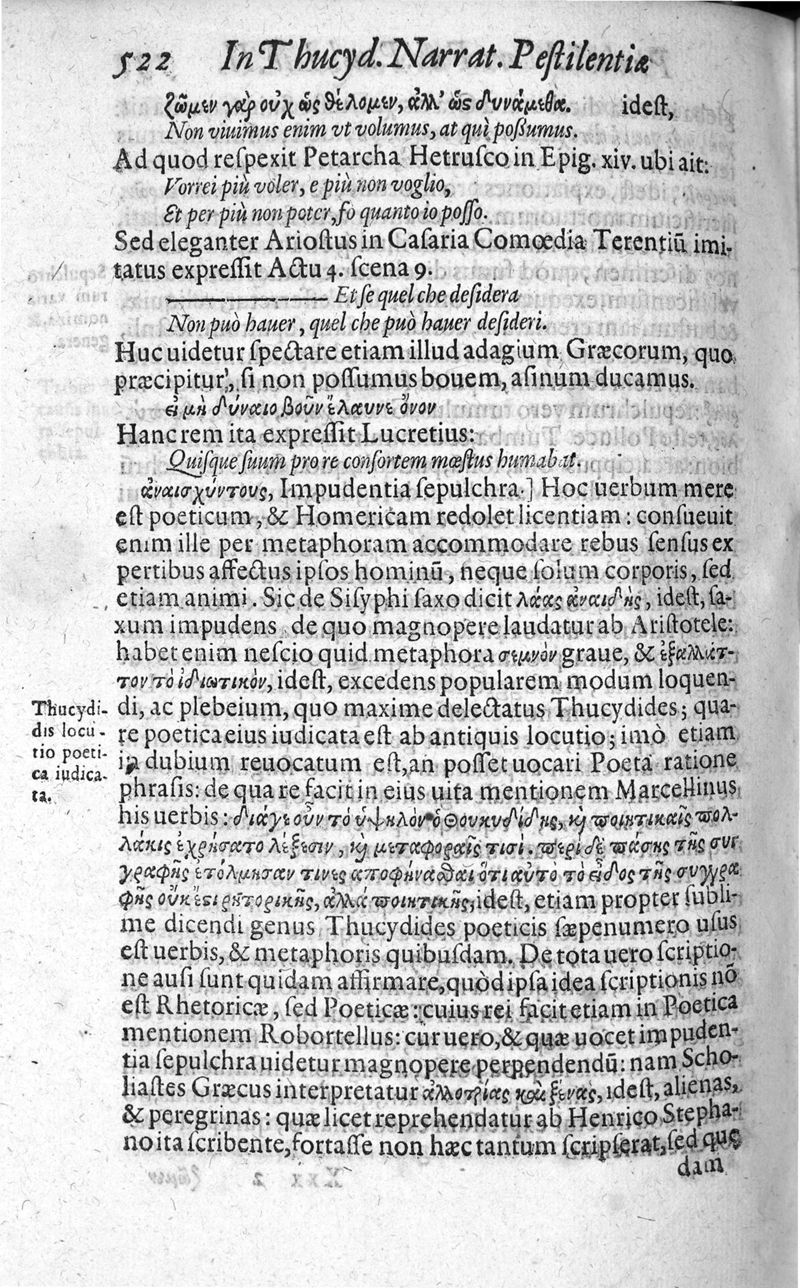 522 In Thucyd. Narrat. Pestilentiæ
ζῶμεν γὰρ οὐχ ὡς θέλομεν, ἀλλ' ὡς δυνάμεθα. idest,
Non viuimus enim vt volumus, at quì poßumus.
Ad quod respexit Petarcha Hetrusco in Epig. xiv. ubi ait:
Vorrei più voler, e più non voglio,
Et per più non poter, fo quanto io posso.
Sed eleganter Ariostus in Casaria Comœdia Terentiũ imi-
tatus expressit Actu 4. scena 9.
Et se quel che desidera
Non può hauer, quel che può hauer desideri.
Huc uidetur spectare etiam illud adagium Græcorum, quo
præcipitur, si non possumus bouem, asinum ducamus.
εἰ μὴ δύναιο βοῦν ἔλαυνε ὄνον
Hanc rem ita expressit Lucretius:
Quisque suum pro re consortem mœstus humabat.
ἀναισχύντους, Impudentia sepulchra.] Hoc uerbum mere
est poeticum, & Homericam redolet licentiam: consueuit
enim ille per metaphoram accommodare rebus sensus ex
pertibus affectus ipsos hominũ, neque solum corporis, sed
etiam animi. Sic de Sisyphi saxo dicit λάας ἀναιδής, idest, sa-
xum impudens de quo magnopere laudatur ab Aristotele:
habet enim nescio quid metaphora σεμνὸν graue, & ἐξαλλάτ-
τον τὸ ἰδιωτικόν, idest, excedens popularem modum loquen-
Thucydi-
dis locu-
tio poeti-
ca iudica-
ta.
di, ac plebeium, quo maxime delectatus Thucydides; qua-
re poetica eius iudicata est ab antiquis locutio; imò etiam
in dubium reuocatum est, an posset uocari Poeta ratione
phrasis: de qua re facit in eius uita mentionem Marcellinus
his uerbis: διάγε οὖν τὸ ὑψηλὸν ὁ Θουκυδίδης, κ̀ ποιητικαῖς πολ-
λάκις ἐχρήσατο λέξεσιν, κ̀ μεταφοραῖς τισί. περὶ δὲ πάσης τῆς συγ
γραφῆς ἐτόλμησαν τινες ἀποφήνασθαι ὅτι αὐτὸ τὸ εἶδος τῆς συγγρα
φῆς οὐκ ἔστι ῥητορικῆς, ἀλλὰ ποιητικῆς, idest, etiam propter subli-
me dicendi genus Thucydides poeticis sæpenumero usus
est uerbis, & metaphoris quibusdam. De tota uero scriptio-
ne ausi sunt quidam affirmare, quòd ipsa idea scriptionis nõ
est Rhetoricæ, sed Poeticæ: cuius rei facit etiam in Poetica
mentionem Robortellus: cur uero, & quæ uocet impuden-
tia sepulchra uidetur magnopere perpendendũ: nam Scho-
liastes Græcus interpretatur ἀλλοτρίας καὶ ξένας, idest, alienas,
& peregrinas: quæ licet reprehendatur ab Henrico Stepha-
no ita scribente, fortasse non hæc tantum scripserat, sed quę
dam